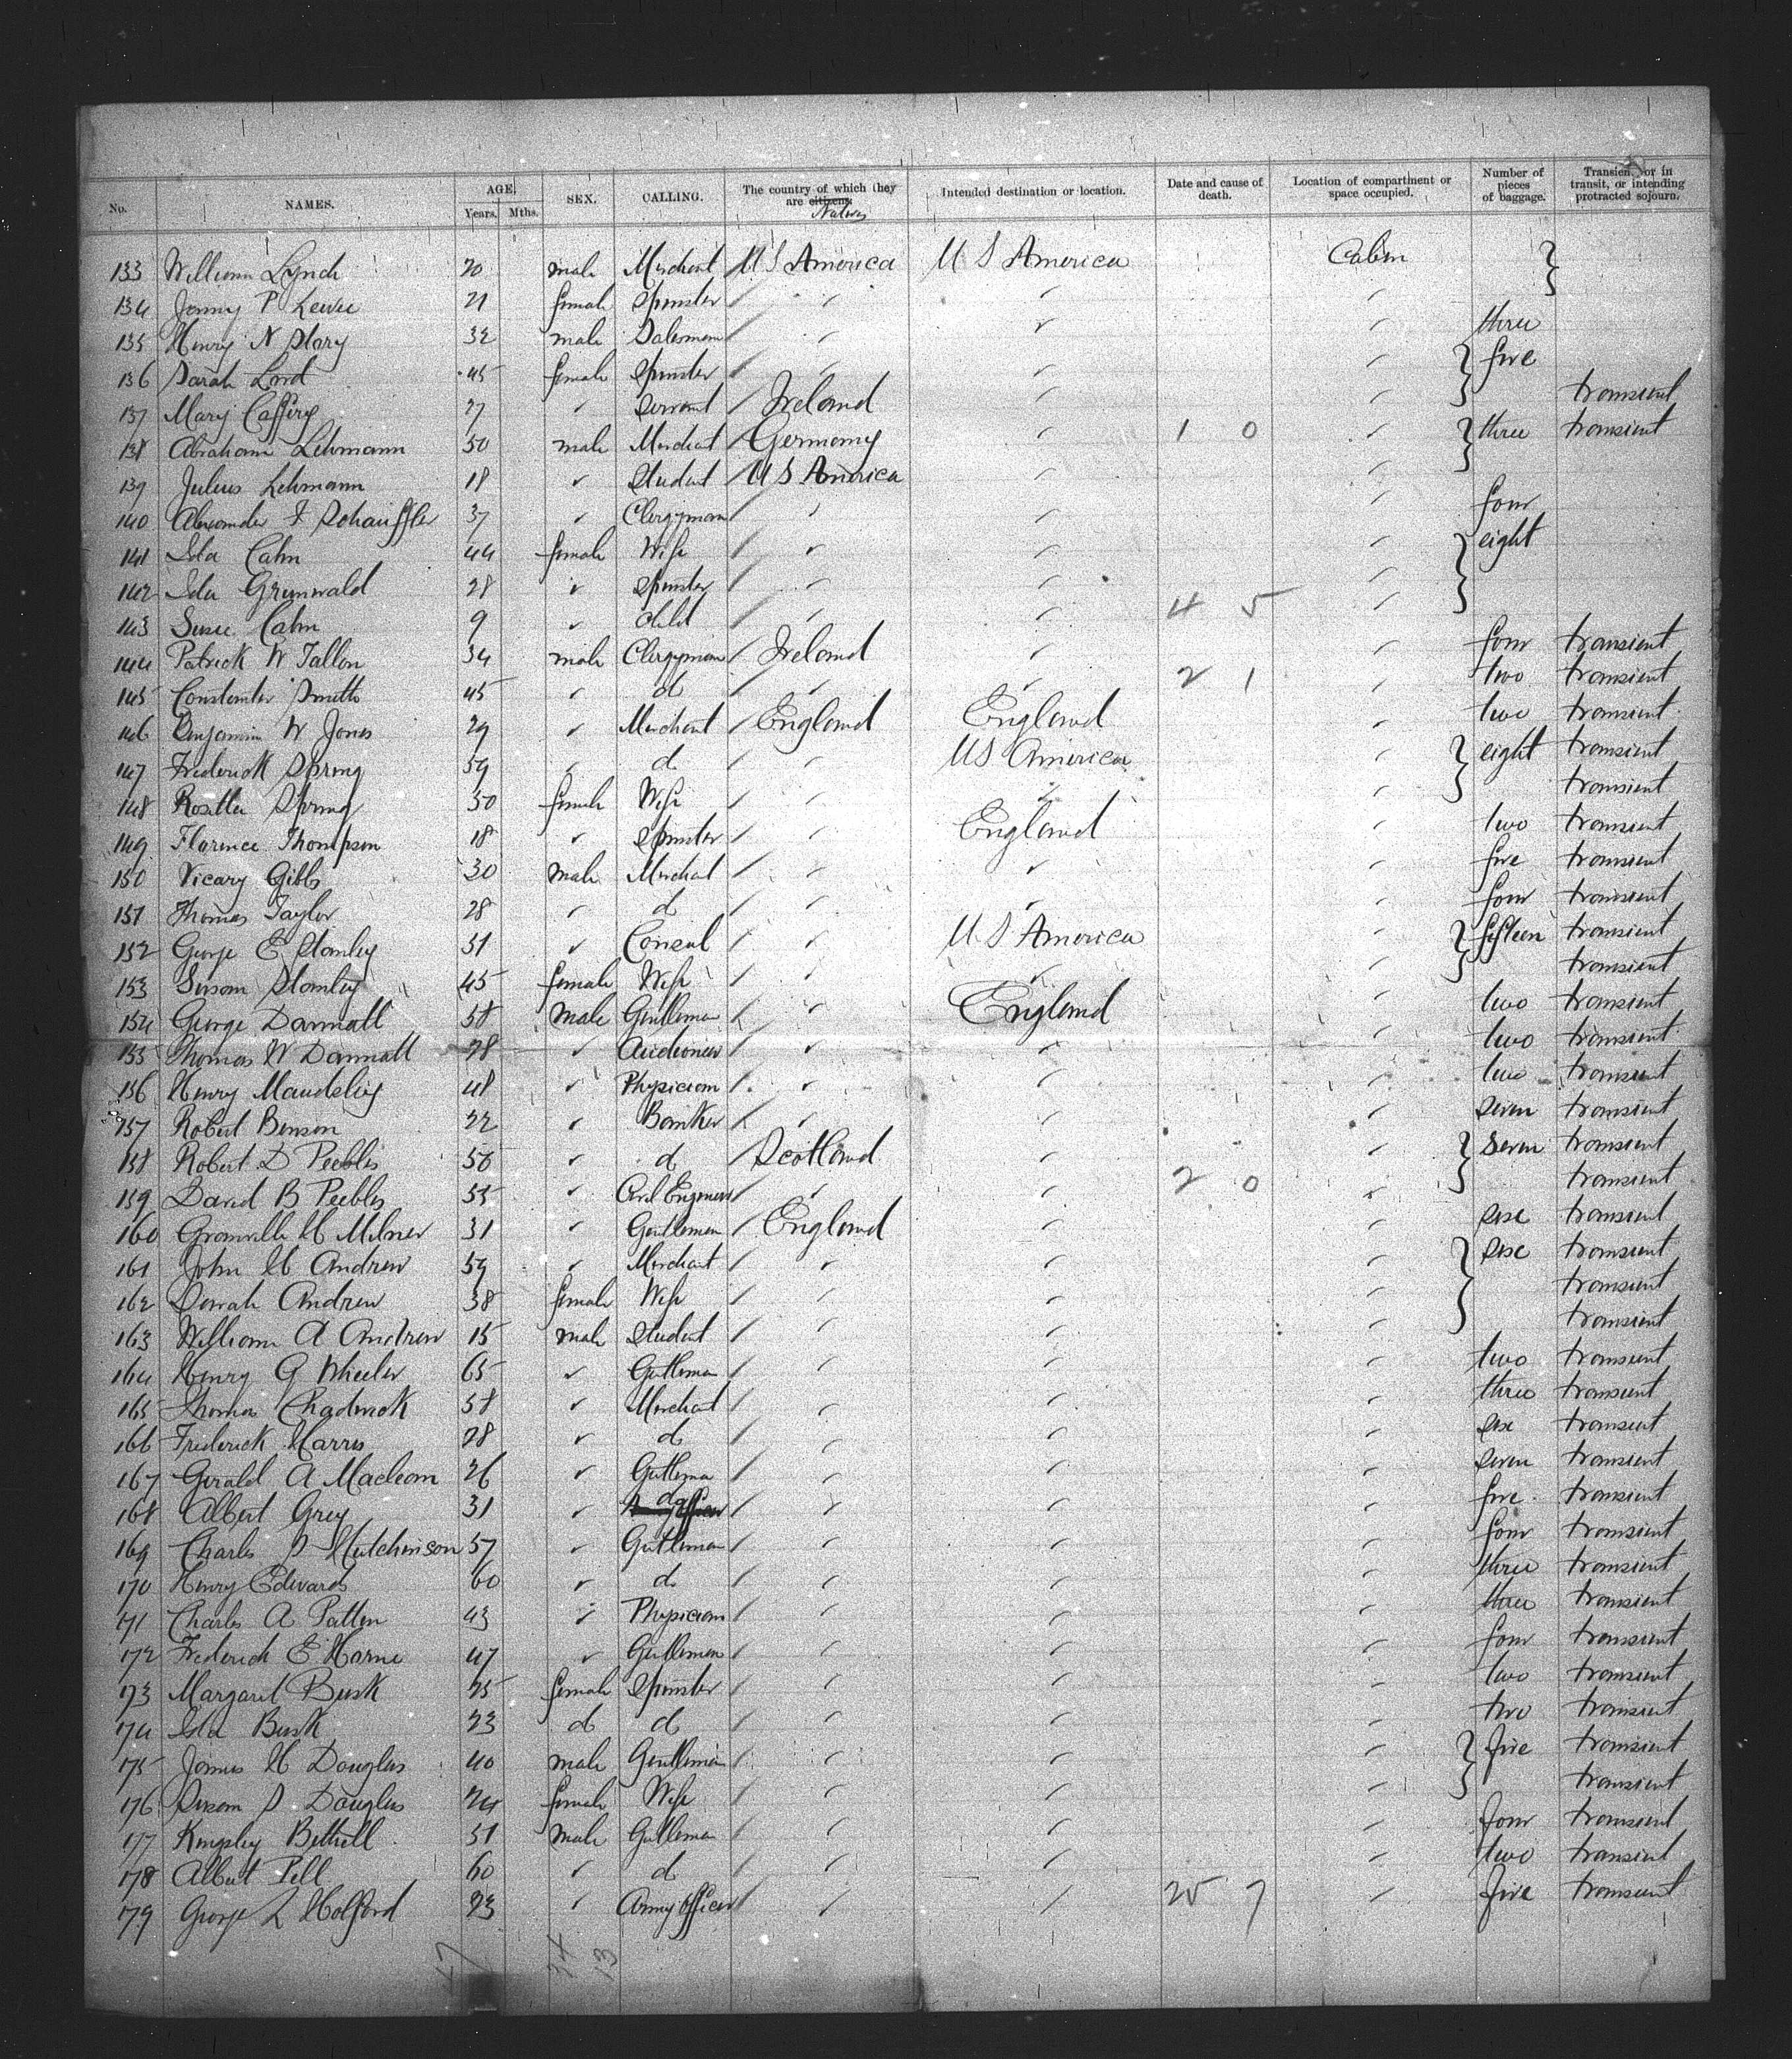 No. NAMES. AGE. Years. Mths. SEX. CALLING. The country of which they are citizens. Natives Intended destination or location. Date and cause of death. Location of compartment or space occupied. Number of pieces of baggage. Transient, or in transit, or intending protracted sojourn.
133 William Lynch 20 male Merchant U S America U S America Cabin }
134 Jenny P Lewee 21 female Spinster " " "
135 Henry N Story 32 male Salesman " " " three
136 Sarah Lord 45 female Spinster " " " } five
137 Mary Caffery 27 " Servant Ireland " " transient
138 Abraham Lehmann 50 male Merchant Germany " 1 0 " } three transient
139 Julius Lehmann 18 " Student U S America " "
140 Alexander F Schauffler 37 " Clergyman " " " four
141 Ida Cahn 44 female Wife " " " } eight
142 Ida Grunwald 28 " Spinster " " "
143 Susie Cahn 9 " Child " " 4 5 "
144 Patrick W Tallon 34 male Clergyman Ireland " " four transient
145 Constantin Smith 45 " do " " 2 1 " two transient
146 Benjamin W Jones 29 " Merchant England England " two transient
147 Frederick Spring 59 " do " US America " } eight transient
148 Spring 50 female Wife " " " transient
149 Florence Thompson 18 " Spinster " England " two transient
150 Vicary Gibbs 30 male Merchant " " " five transient
151 Thomas Taylor 28 " do " " " four transient
152 George E Stanley 51 " Consul " U S America " } fifteen transient
153 Susan Stanley 45 female Wife " " " transient
154 George Dannatt 58 male Gentleman " England " two transient
155 Thomas W Dannatt 28 " Auctioneer " " " two transient
156 Henry Maudsley 48 " Physician " " " two transient
157 Robert Benson 22 " Banker " " " seven transient
158 Robert D Peebles 56 " do Scotland " " } seven transient
159 David B Peebles 55 " Civil Engineer " " 2 0 " transient
160 Granville H Milner 31 " Gentleman England " " six transient
161 John H Andrew 59 " Merchant " " " } six transient
162 Sarah Andrew 38 female Wife " " " transient
163 William A Andrew 15 male Student " " " transient
164 Henry G Wheeler 65 " Gentleman " " " two transient
165 Thomas Chadwick 58 " Merchant " " " three transient
166 Frederick Harris 28 " do " " " six transient
167 Gerald A Maclean 26 " Gentleman " " " seven transient
168 Albert Grey 31 " do " " " five transient
169 Charles S Hutchinson 57 " Gentleman " " " four transient
170 Henry Edwards 60 " do " " " three transient
171 Charles A Patten 43 " Physician " " " three transient
172 Frederick E Horne 47 " Gentleman " " " four transient
173 Margaret Busk 25 female Spinster " " " two transient
174 Ida Busk 23 do do " " " two transient
175 James H Douglas 40 male Gentleman " " " } five transient
176 Susan S Douglas 24 female Wife " " " transient
177 Kingsley Bethell 51 male Gentleman " " " four transient
178 Albert Pell 60 " do " " " two transient
179 George L Holford 23 " Army officer " " 25 7 " five transient
47 34 13